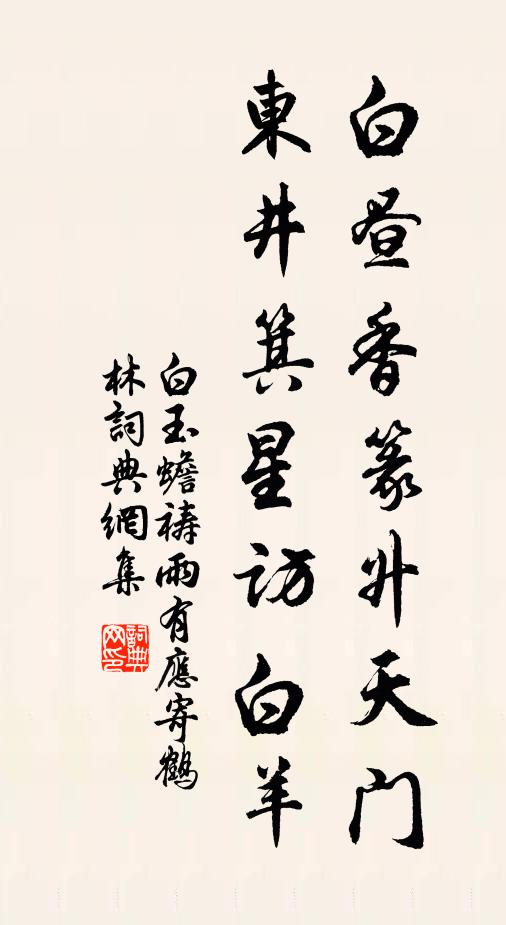 白晝香篆升天門
東井箕星訪白羊
白玉蟾禱雨有應寄鶴
林詞典網集
詞典
网印